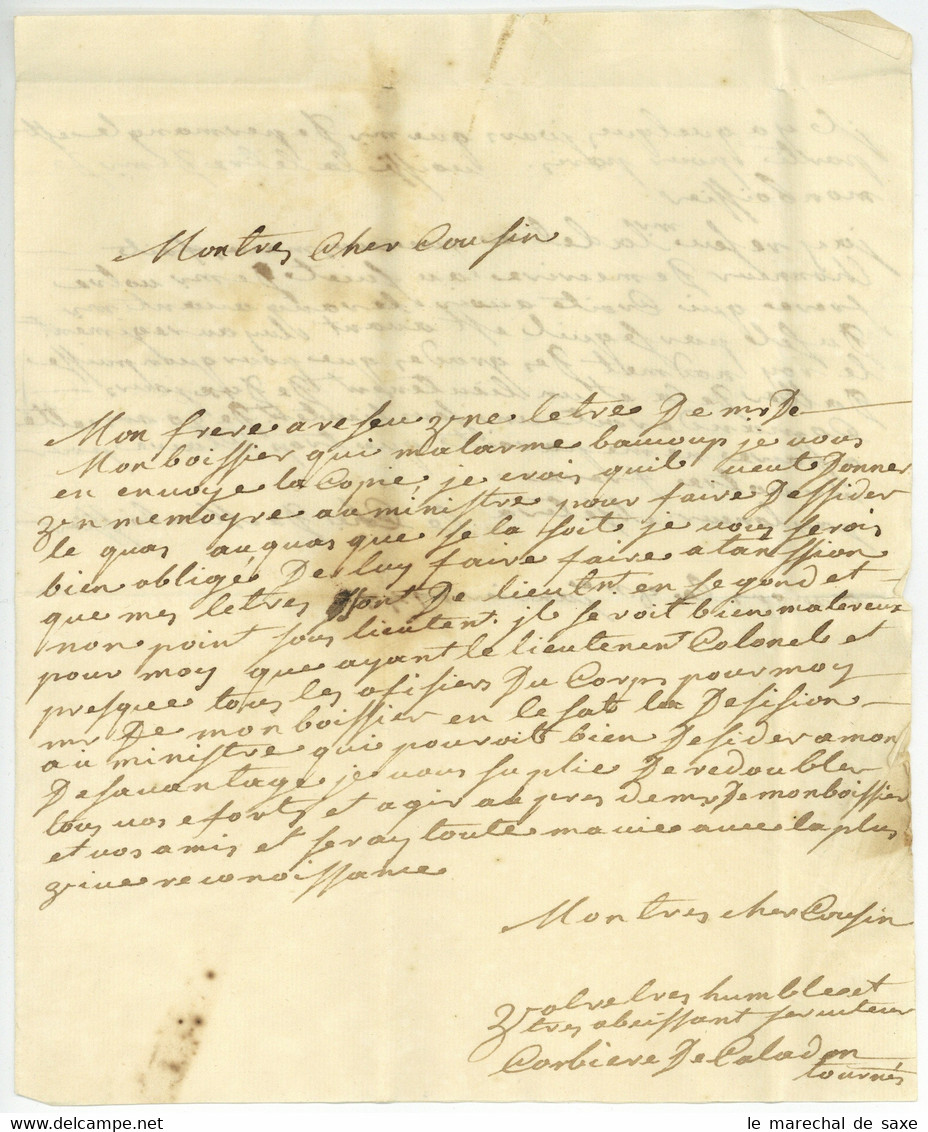 Montres Cher Cousin
Mon frere a reseu une letre De mr De
Monboissier qui malarme baucoup je vous
en envoye la Copie je crois quil veut Donner
un memoyre au ministre pour faire Dessider
le quas au quas que se la soit je vous serois
bien obligé De luy faire faire atanssion
que mes letres sont De lieutnt. en segond et
non point sous lieutent. jl se roit bien malereux
pour moy que ayant le lieutenent Colonel et
presque tous les ofisiers Du Corps pour moy
mr De monboissier en le sat la Desision
au ministre qui pouroit bien Desider a mon
Desavantage je vous suplie De redoubler
tous vos eforts et agir au pres de mr De monboissier
et vos amis et seray toute ma vie avec la plus
vive reconoissance
Montres cher Cousin
Votre tres humble et
tres obeissant serviteur
Corbiere De Caladon
tournés
le marechal de saxe